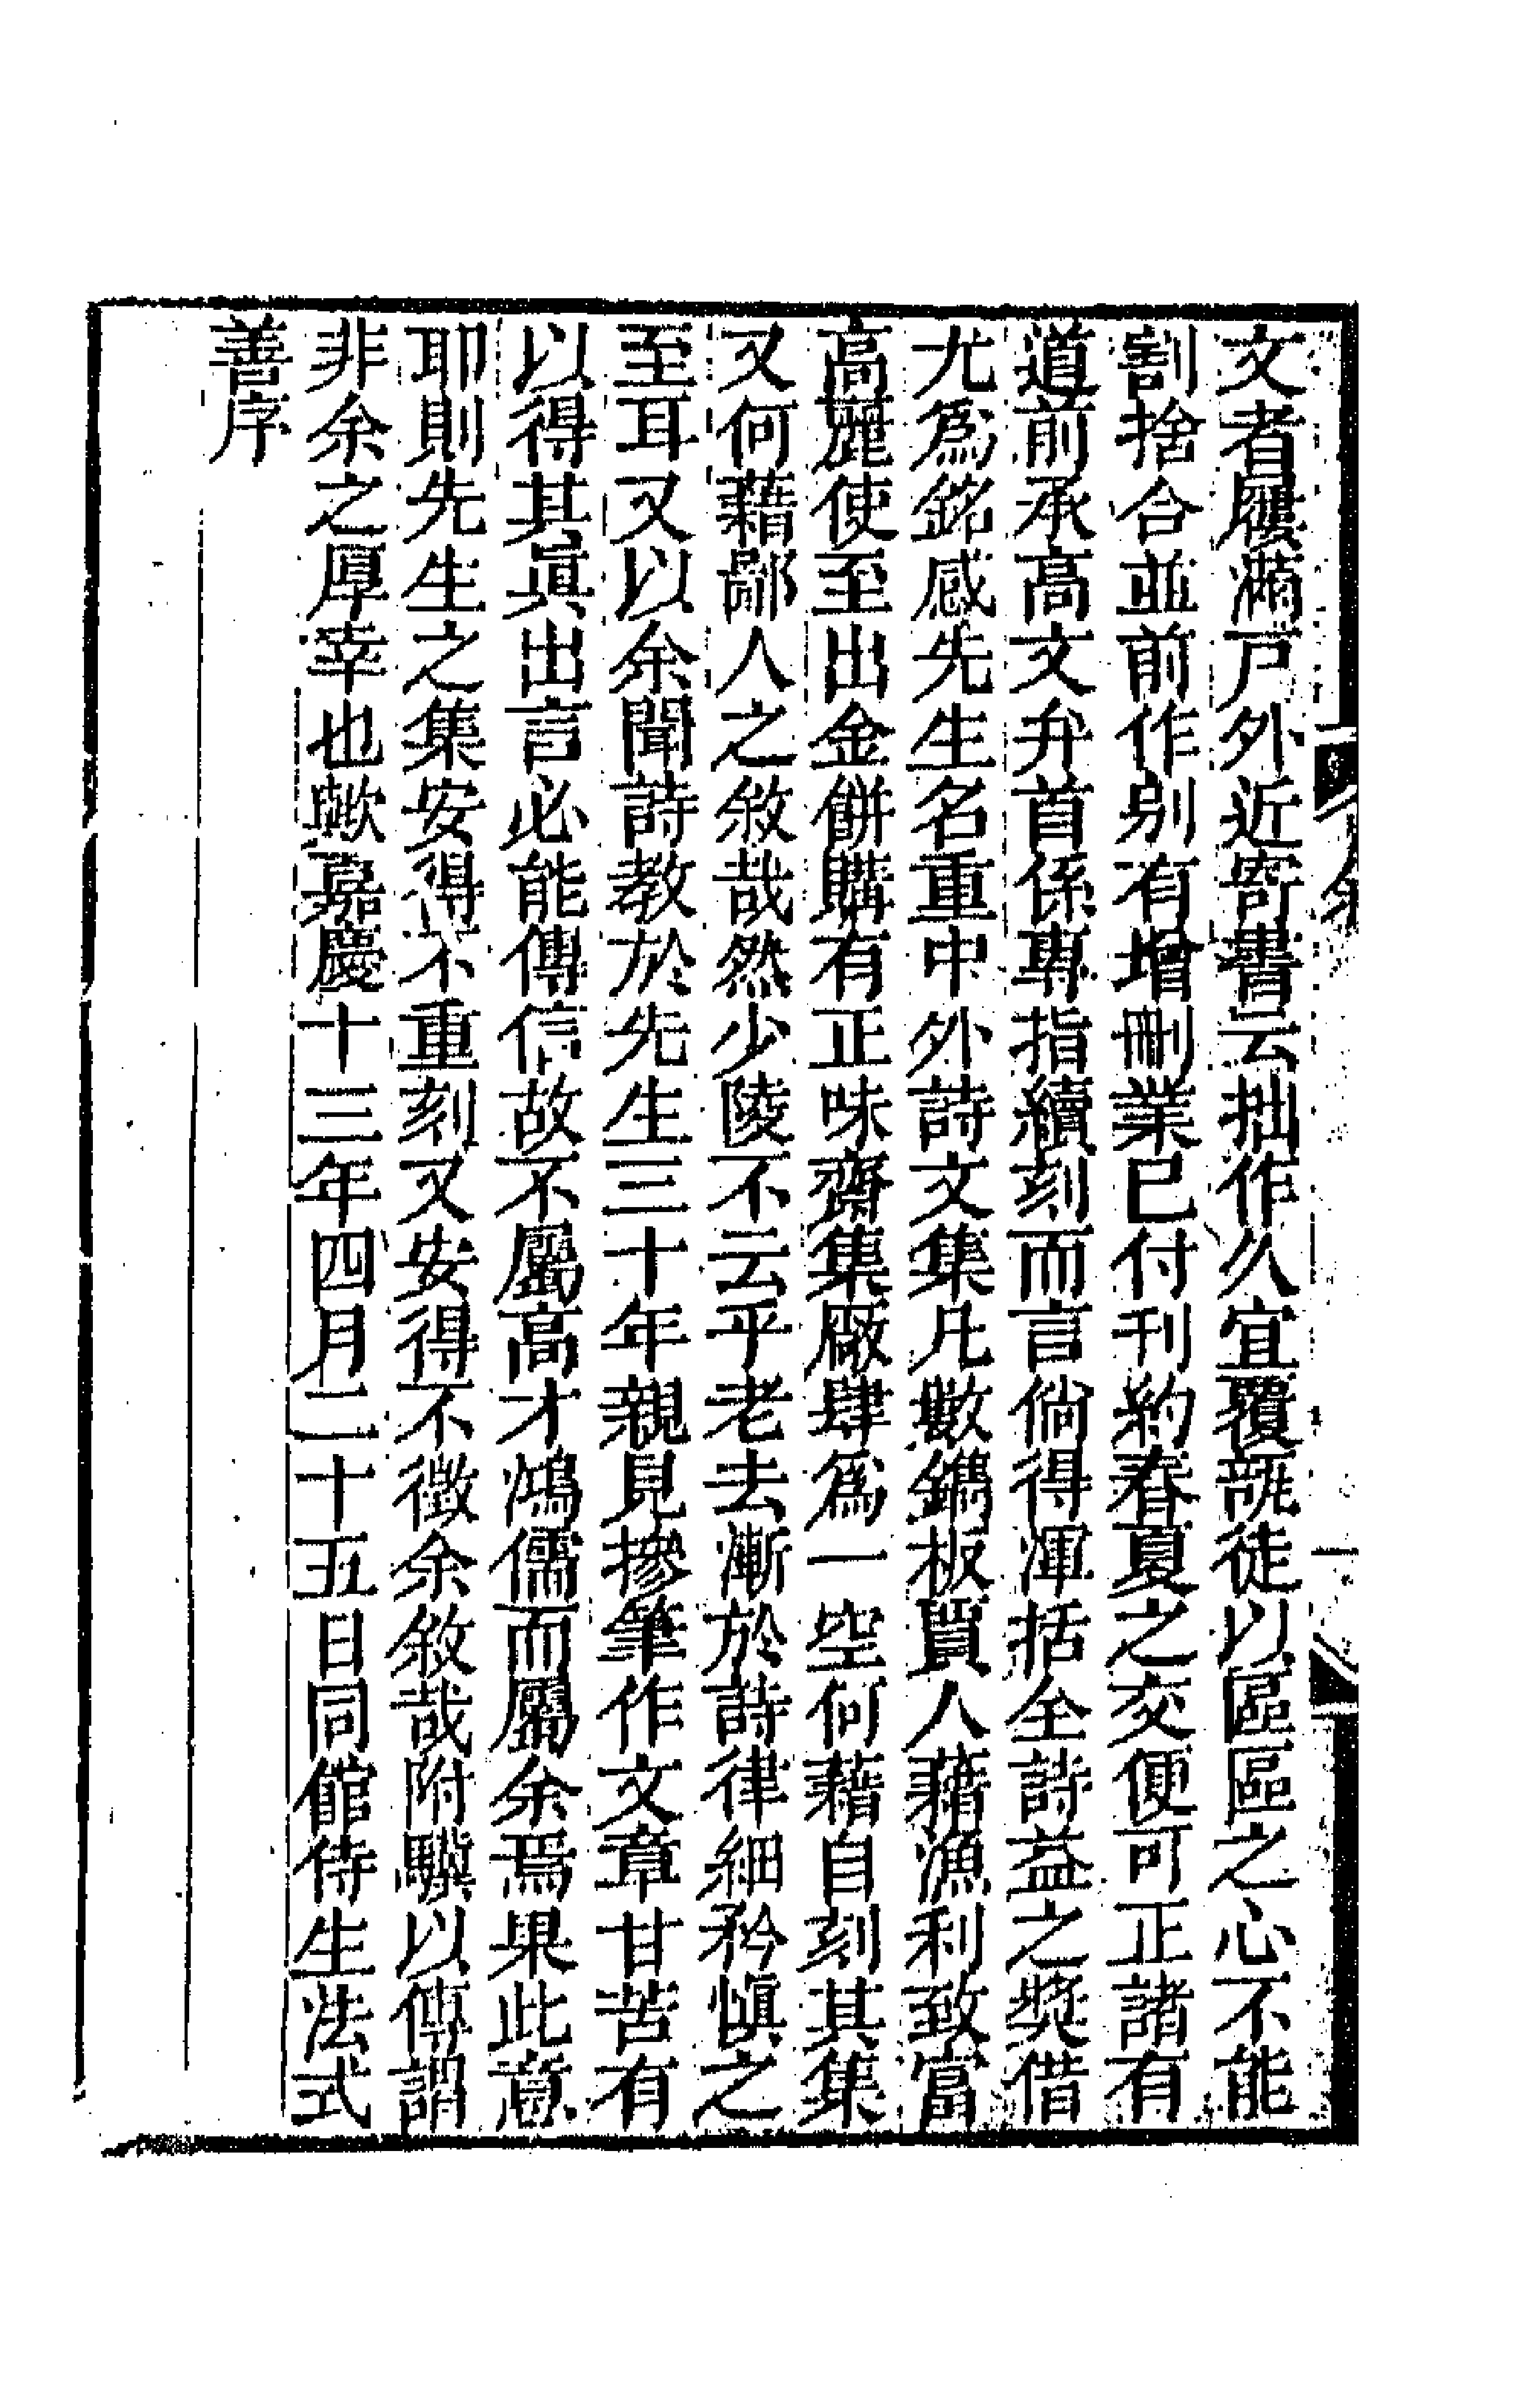 文者屨滿戸外近寄書云拙作久宜覆瓿徒以區區之心不能
割捨合並前作别有增刪業已付刊約春夏之交便可正諸有
道前承高文弁首係專指續刻而言倘得渾括全詩益之奬借
尤爲銘感先生名重中外詩文集凡數鐫板賈人藉漁利致富
高麗使至出金餅購有正味齋集厰肆爲一空何藉自刻其集
又何藉鄙人之敘哉然少陵不云乎老去漸於詩律細矜愼之
至耳又以余聞詩教於先生三十年親見摻筆作文章甘苦有
以得其眞出言必能傳信故不屬高才鴻儒而屬余焉果此意
耶則先生之集安得不重刻又安得不徵余敘哉附驥以傳謂
非余之厚幸也歟嘉慶十三年四月二十五日同館侍生法式
善序